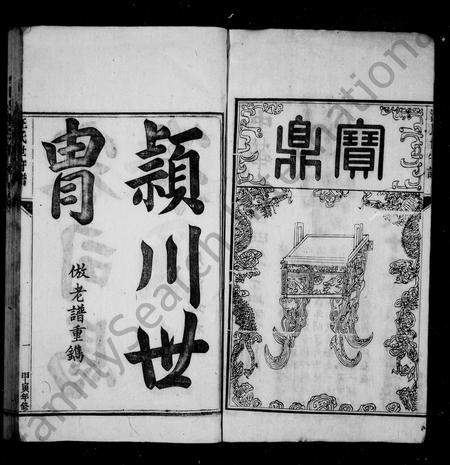 寶鼎
潁川世
胄
倣老譜重鐫
一
甲寅年修
FamilySearch International